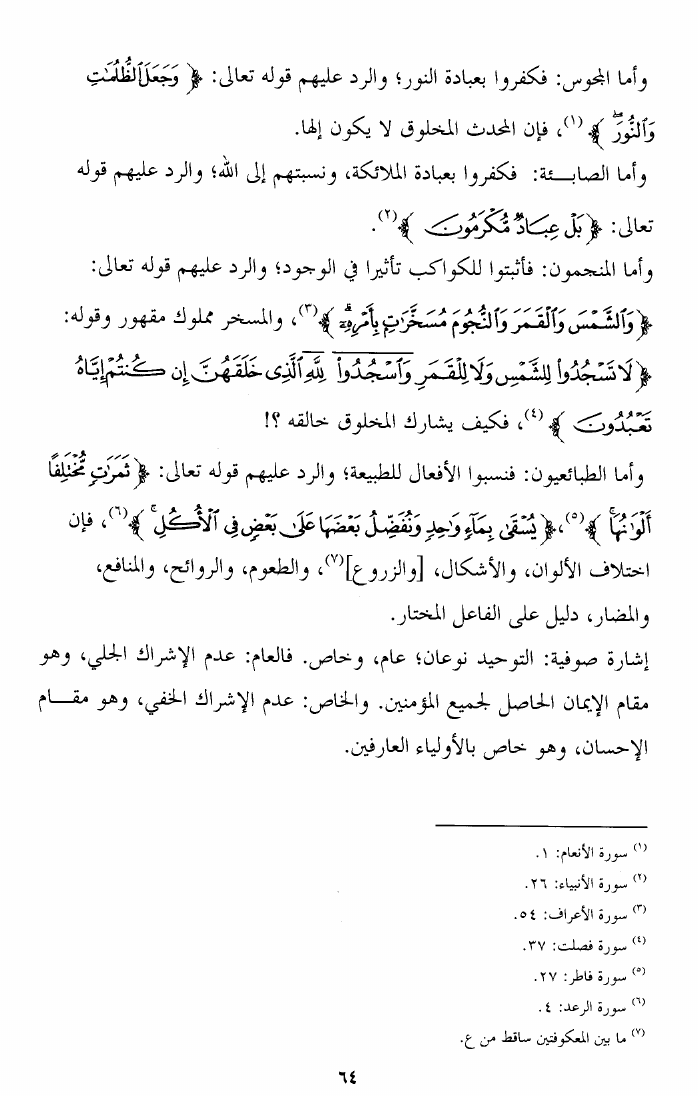 وأما المجوس: فكفروا بعبادة النور؛ والرد عليهم قوله تعالى: ﴿ وَجَعَلَ ٱلظُّلُمَٰتِ
وَٱلنُّورَۖ ﴾(١)، فإن المحدث المخلوق لا يكون إلها.
وأما الصابـــئة: فكفروا بعبادة الملائكة، ونسبتهم إلى الله؛ والرد عليهم قوله
تعالى: ﴿ بَلْ عِبَادٌ مُّكْرَمُونَ ﴾(٢).
وأما المنجمون: فأثبتوا للكواكب تأثيرا في الوجود؛ والرد عليهم قوله تعالى:
﴿ وَٱلشَّمْسَ وَٱلْقَمَرَ وَٱلنُّجُومَ مُسَخَّرَٰتٍۭ بِأَمْرِهِۦٓۗ ﴾(٣)، والمسخر مملوك مقهور وقوله:
﴿ لَا تَسْجُدُوا۟ لِلشَّمْسِ وَلَا لِلْقَمَرِ وَٱسْجُدُوا۟ لِلَّهِ ٱلَّذِى خَلَقَهُنَّ إِن كُنتُمْ إِيَّاهُ
تَعْبُدُونَ ﴾(٤)، فكيف يشارك المخلوق خالقه ؟!
وأما الطبائعيون: فنسبوا الأفعال للطبيعة؛ والرد عليهم قوله تعالى: ﴿ ثَمَرَٰتٍ مُّخْتَلِفًا
أَلْوَٰنُهَاۚ ﴾(٥)، ﴿ يُسْقَىٰ بِمَآءٍ وَٰحِدٍ وَنُفَضِّلُ بَعْضَهَا عَلَىٰ بَعْضٍ فِى ٱلْأُكُلِۚ ﴾(٦)، فإن
اختلاف الألوان، والأشكال، [والزروع](٧)، والطعوم، والروائح، والمنافع،
والمضار، دليل على الفاعل المختار.
إشارة صوفية: التوحيد نوعان؛ عام، وخاص. فالعام: عدم الإشراك الجلي، وهو
مقام الإيمان الحاصل لجميع المؤمنين. والخاص: عدم الإشراك الخفي، وهو مقـــام
الإحسان، وهو خاص بالأولياء العارفين.
(١) سورة الأنعام: ١.
(٢) سورة الأنبياء: ٢٦.
(٣) سورة الأعراف: ٥٤.
(٤) سورة فصلت: ٣٧.
(٥) سورة فاطر: ٢٧.
(٦) سورة الرعد: ٤.
(٧) ما بين المعكوفتين ساقط من ع.
٦٤